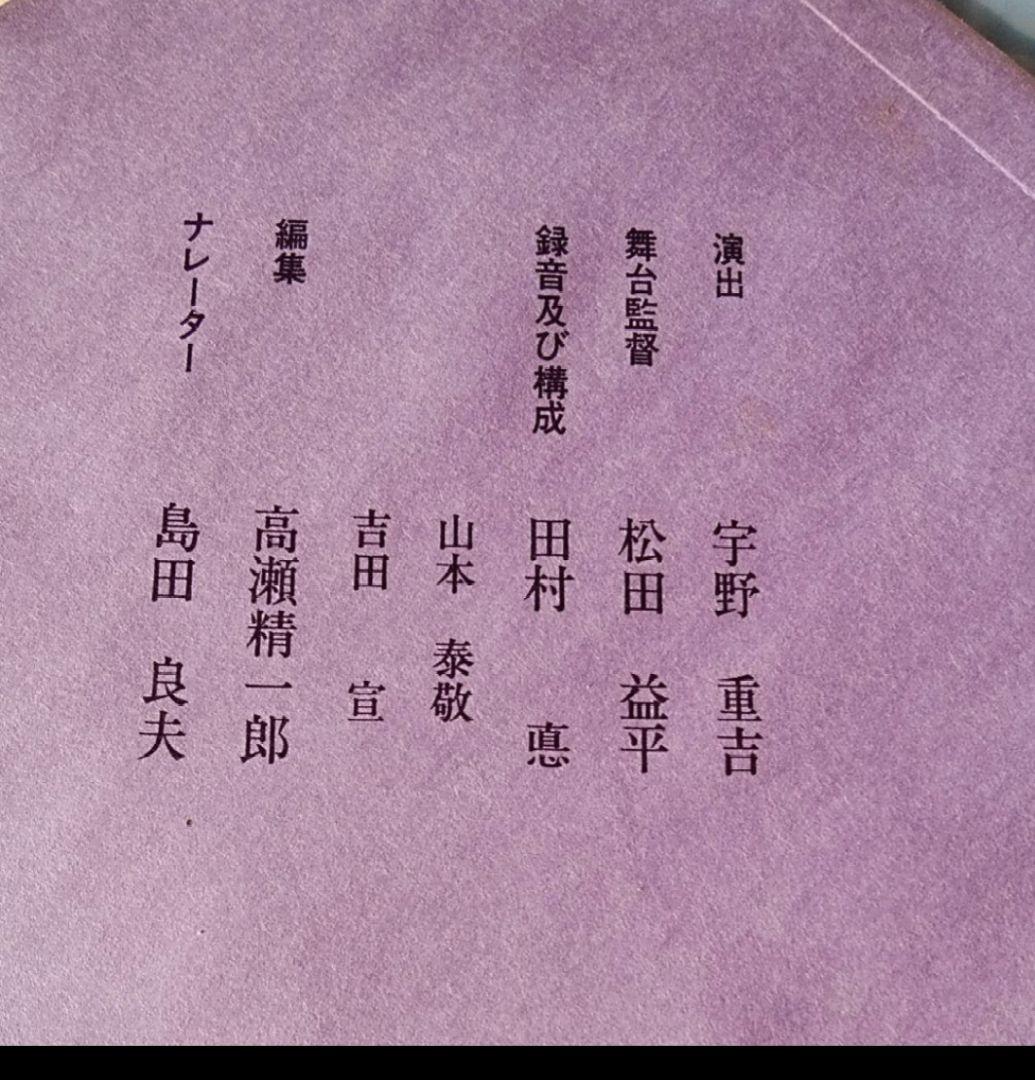 演出 宇野 重吉
舞台監督 松田 益平
録音及び構成 田村 悳
山本 泰敬
吉田 宣
編集 高瀬精一郎
ナレーター 島田 良夫